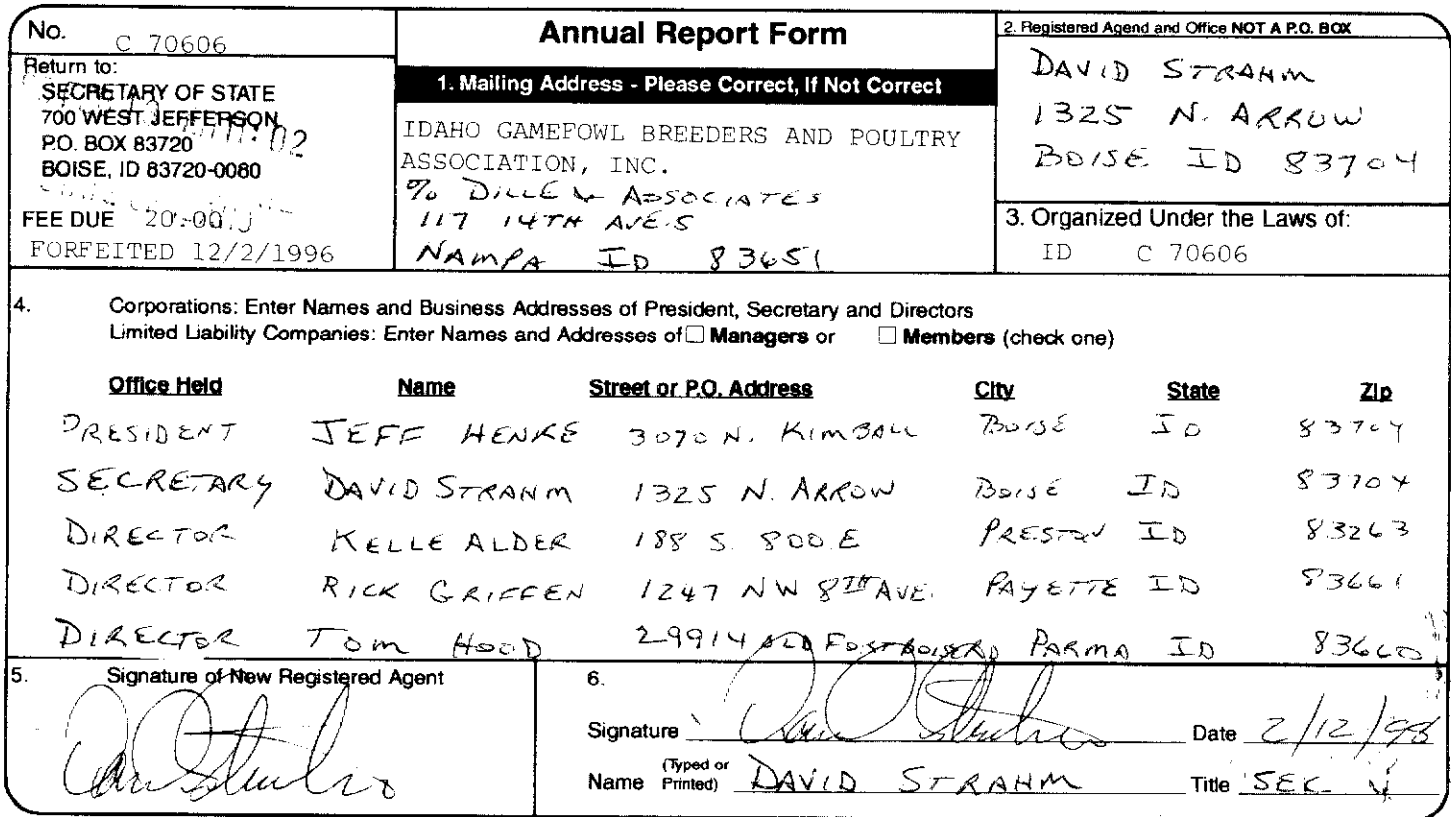 No. C 70606
Return to:
SECRETARY OF STATE
700 WEST JEFFERSON
P.O. BOX 83720
BOISE, ID 83720-0080
FEE DUE 20.00
FORFEITED 12/2/1996
Annual Report Form
1. Mailing Address - Please Correct, If Not Correct
IDAHO GAMEFOWL BREEDERS AND POULTRY
ASSOCIATION, INC.
% DILLE & ASSOCIATES
117 14TH AVE. S
NAMPA ID 83651
2. Registered Agend and Office NOT A P.O. BOX
DAVID STRAHM
1325 N. ARROW
BOISE ID 83704
3. Organized Under the Laws of:
ID C 70606
4. Corporations: Enter Names and Business Addresses of President, Secretary and Directors
Limited Liability Companies: Enter Names and Addresses of Managers or Members (check one)
Office Held Name Street or P.O. Address City State Zip
PRESIDENT JEFF HENKE 3070 N. KIMBALL BOISE ID 83704
SECRETARY DAVID STRAHM 1325 N. ARROW BOISE ID 83704
DIRECTOR KELLE ALDER 188 S. 800 E PRESTON ID 83263
DIRECTOR RICK GRIFFEN 1247 NW 8TH AVE. PAYETTE ID 83661
DIRECTOR TOM HOOD 29914 OLD FORT BOISE RD PARMA ID 83660
5. Signature of New Registered Agent
6.
Signature Date 2/12/98
Name (Typed or Printed) DAVID STRAHM Title SEC.